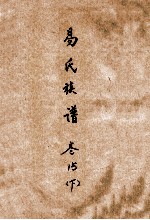 易氏族谱卷15(下)